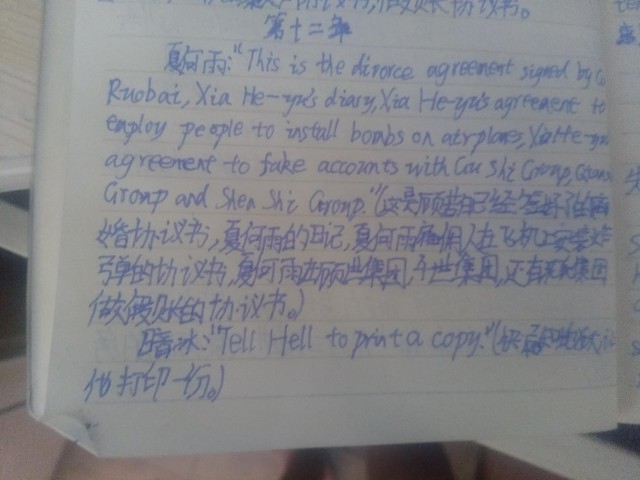 协议书,做假账协议书。
第十二年
夏何雨:"This is the divorce agreement signed by
Ruobai, Xia He-yu's diary, Xia He-yu's agreement to
employ people to install bombs on airplanes, Xia He-yu's
agreement to fake accounts with Gu Shi Group,
Group and Shen Shi Group."(这是顾若白已经签好的离
婚协议书,夏何雨的日记,夏何雨雇佣人在飞机上安装炸
弹的协议书,夏何雨与顾世集团,世集团,还有集团
做假账的协议书。)
暗冰:"Tell Hell to print a copy."(
他打印一份。)